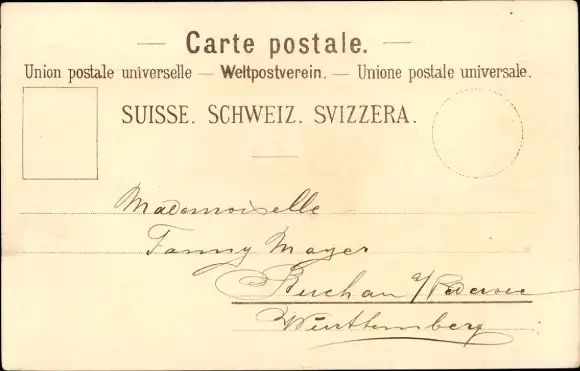 — Carte postale. —
Union postale universelle — Weltpostverein. — Unione postale universale.
SUISSE. SCHWEIZ. SVIZZERA.
Mademoiselle
Fanny Mayer
Buchau a/Federsee
Württemberg